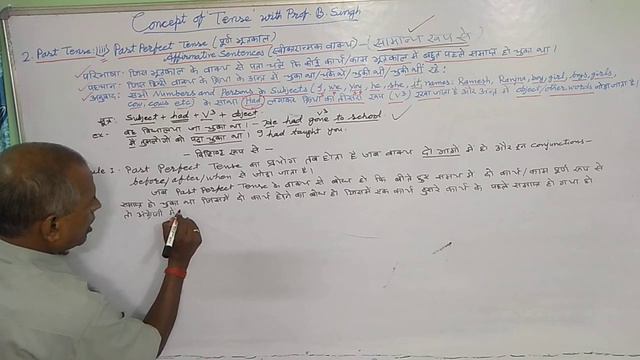 Concept of 'Tense' with Prof. B. Singh
2. Past Tense: (iii) Past Perfect Tense (पूर्ण भूतकाल)
Affirmative Sentences (स्वीकारात्मक वाक्य) - (सामान्य रूप से)
परिभाषा: जिस भूतकाल के वाक्य से पता चले कि कोई कार्य/काम भूतकाल में बहुत पहले समाप्त हो चुका था।
पहचान: जिस हिन्दी वाक्य के क्रिया के अन्त में चुका था/चुके थे/चुकी थी/चुकी थीं रहे:
अनुवाद: सभी Numbers and Persons के Subjects (I, we, you, he, she, it, names: Ramesh, Ranjna, boy, girl, boys, girls,
cow, cows etc) के साथ (Had) लगाकर क्रिया का तीसरा रूप (V3) रखा जाता है और अन्त में object/other words जोड़ा जाता है।
सूत्र: Subject + had + V3 + object
ex - वह विद्यालय जा चुका था। - He had gone to school
V3
मैं तुमलोगों को पढ़ा चुका था। I had taught you.
- विशिष्ट रूप से -
Rule 1: Past Perfect Tense का प्रयोग तब होता है जब वाक्य दो भागों में हो और इन conjunctions-
before/after/when से जोड़ा जाता है।
जब Past Perfect Tense के वाक्य से बोध हो कि बीते हुए समय में दो कार्य/काम पूर्ण रूप से
समाप्त हो चुका था जिसमें दो कार्य होने का बोध हो जिसमें एक कार्य दूसरे कार्य के पहले समाप्त हो गया हो
तो अंग्रेजी में